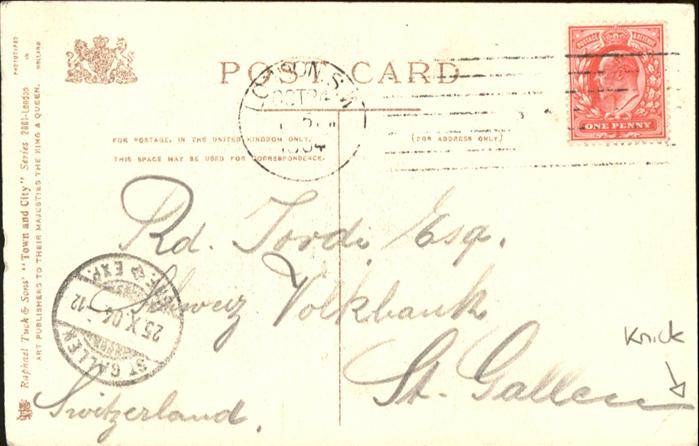 PHOTOTYPED IN HOLLAND
Raphael Tuck & Sons' "Town and City" Series 2001-London
ART PUBLISHERS TO THEIR MAJESTIES THE KING & QUEEN.
POST CARD
POSTAGE & REVENUE
ONE PENNY
LONDON. S.W
OCT 24
1904
FOR POSTAGE, IN THE UNITED KINGDOM ONLY,
THIS SPACE MAY BE USED FOR CORRESPONDENCE.
(FOR ADDRESS ONLY)
Esq.
Schweiz Volksbank
St. Gallen
Switzerland.
ST GALLEN
25 X 04 -12
EXP.
Knick